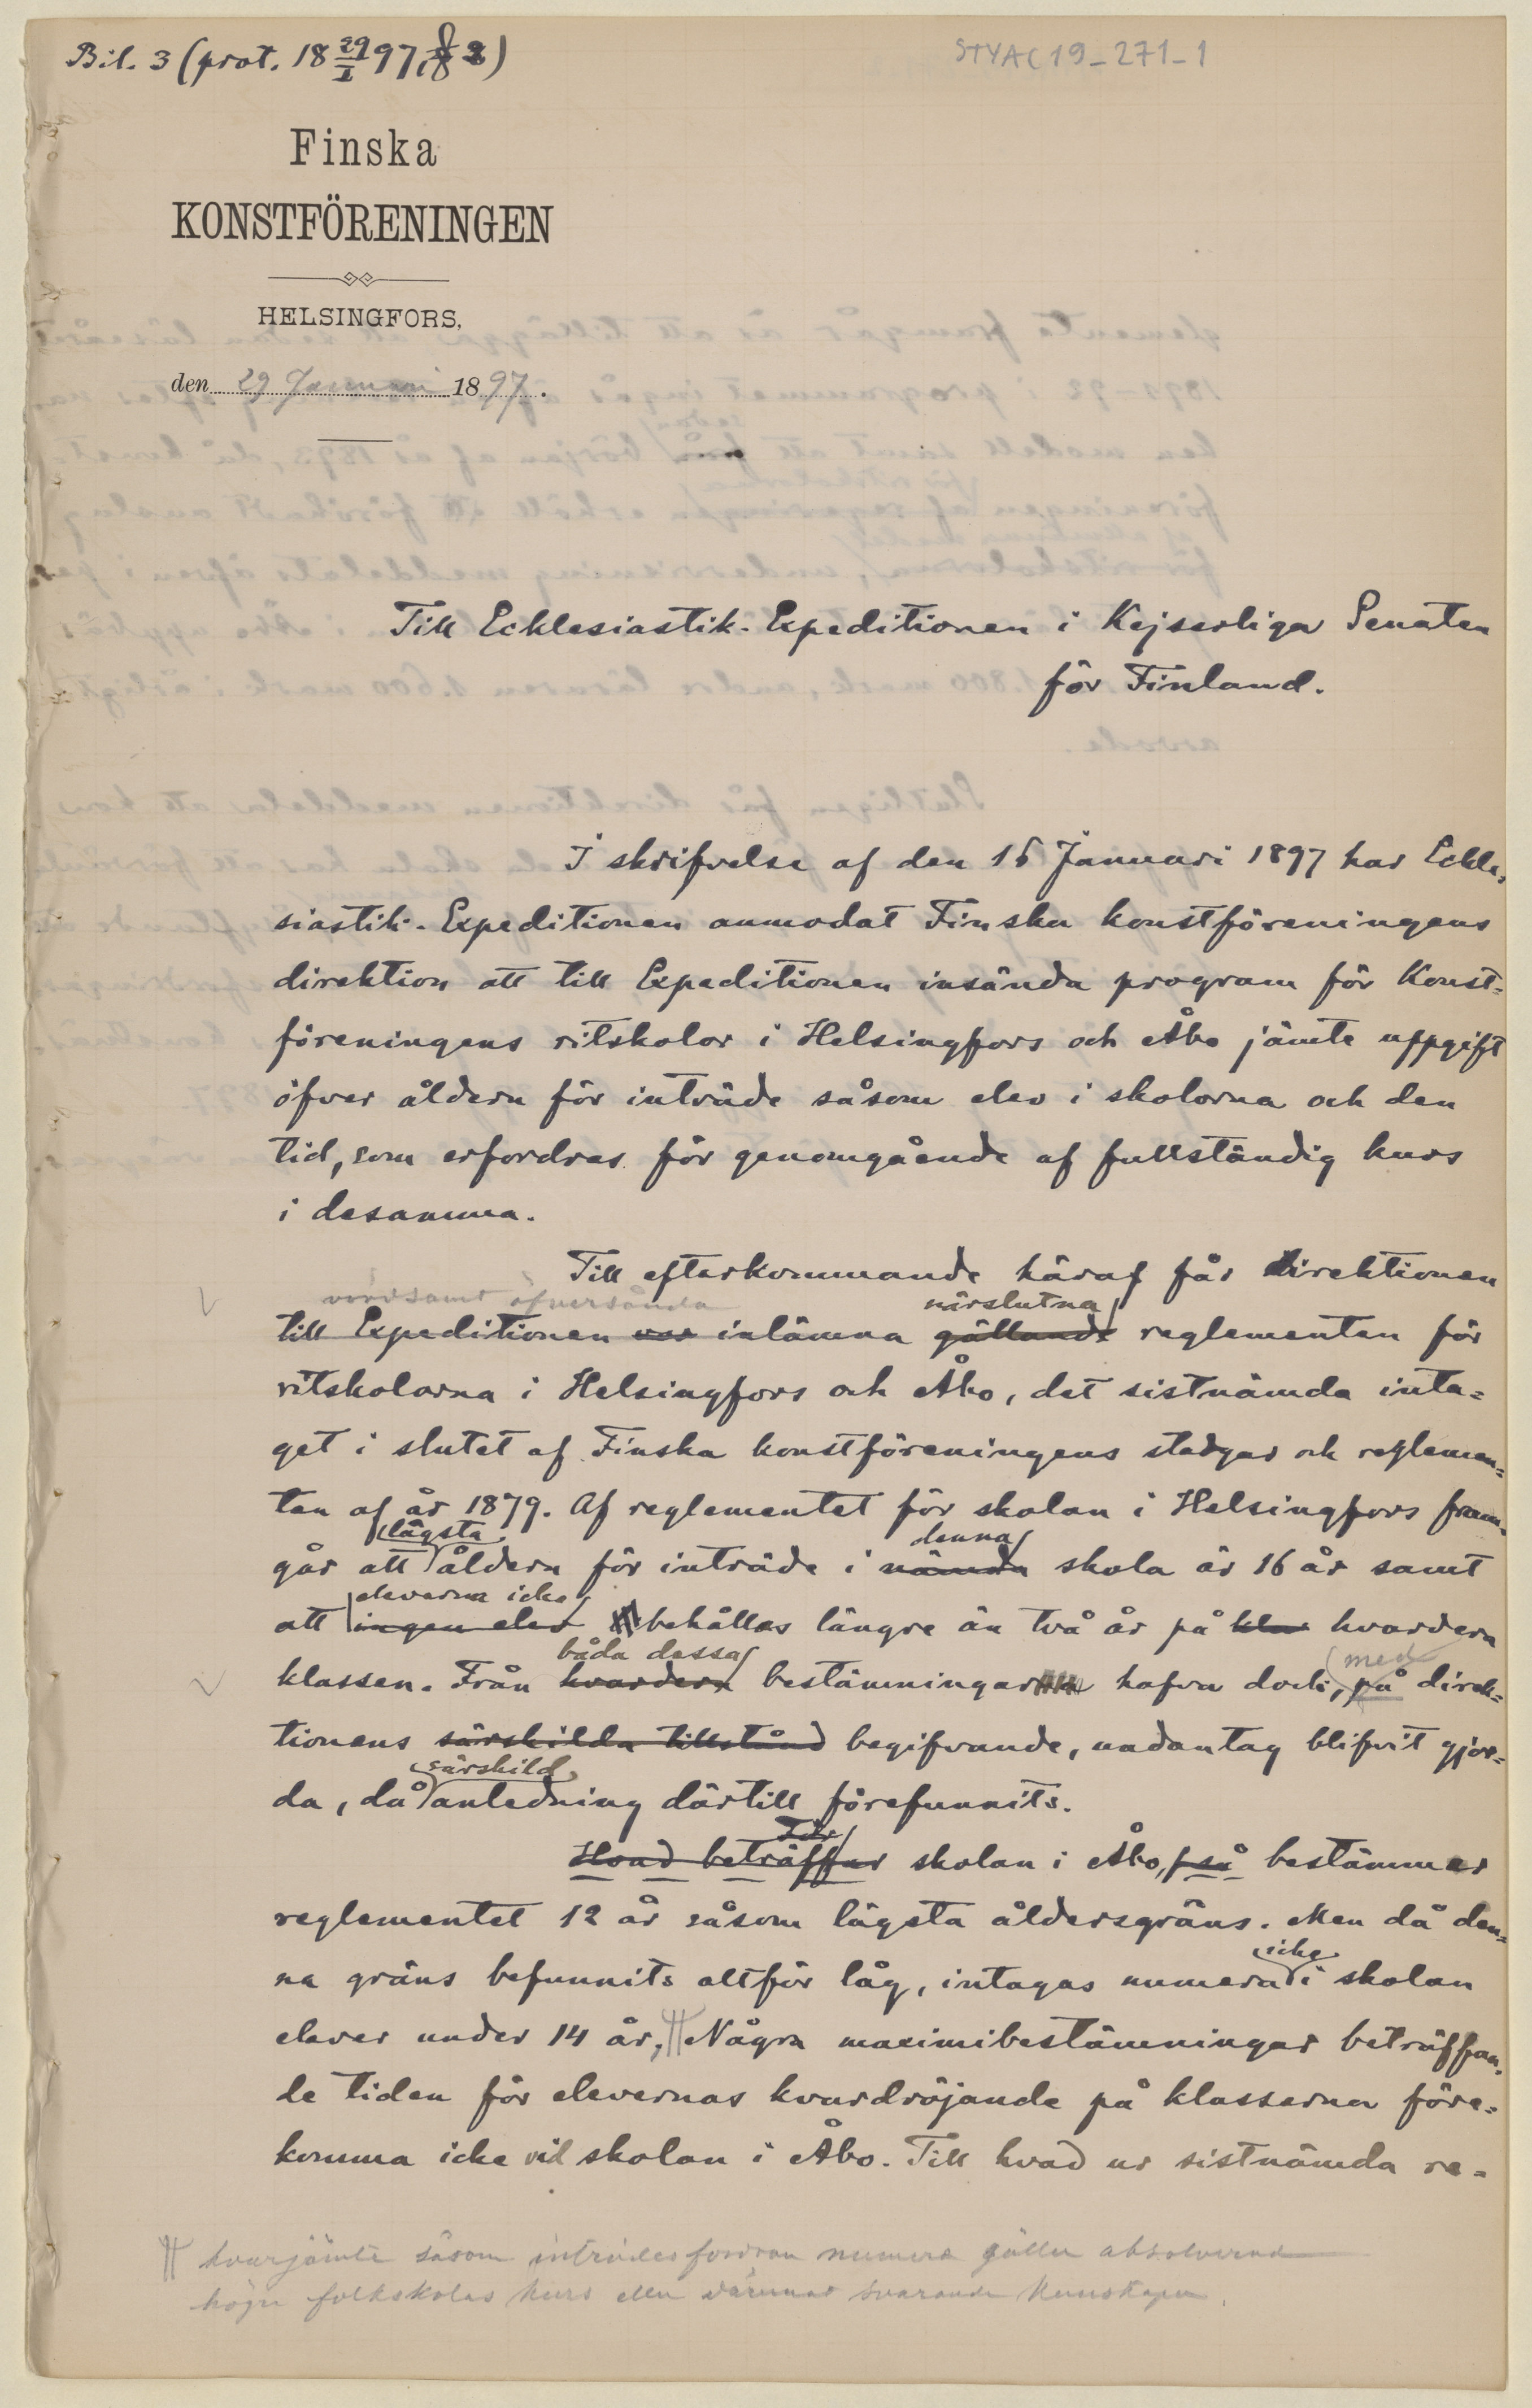 Bil. 3 (prot. 18 29/I 97, § 3)
STYAC 19_271_1
Finska
KONSTFÖRENINGEN
HELSINGFORS,
den 29 Januari 1897.
Till Ecklesiastik-Expeditionen i Kejserliga Senaten
för Finland.
I skrifvelse af den 15 Januari 1897 har Eckle-
siastik-Expeditionen anmodat Finska konstföreningens
direktion att till Expeditionen insända program för Konst-
föreningens ritskolor i Helsingfors och Åbo jämte uppgift
öfver åldern för inträde såsom elev i skolorna och den
tid, som erfordras för genomgående af fullständig kurs
i desamma.
Till efterkommande häraf får direktionen
vördsamt öfversända närslutna
till Expeditionen inlämna gällande reglementen för
ritskolorna i Helsingfors och Åbo, det sistnämda inta-
get i slutet af Finska konstföreningens stadgar och reglemen-
ten af år 1879. Af reglementet för skolan i Helsingfors fram-
lägsta denna
går att åldern för inträde i nämda skola är 16 år samt
eleverna icke
att ingen elev behållas längre än två år på klas hvardera
båda dessa med
klassen. Från hvardera bestämningar hafva dock, på direk-
tionens särskilda tillstånd begifvande, undantag blifvit gjor-
särskild
da, då anledning därtill förefunnits.
För
Hvad beträffar skolan i Åbo, så bestämmer
reglementet 12 år såsom lägsta åldersgräns. Men då den-
icke
na gräns befunnits alltför låg, intagas numera i skolan
elever under 14 år, Några maximibestämningar beträffan-
de tiden för elevernas kvardröjande på klasserna före-
komma icke vid skolan i Åbo. Till hvad ur sistnämda re-
hvarjämte såsom inträdesfordran numera gäller absolverad
högre folkskolas kurs eller däremot svarande kunskaper.